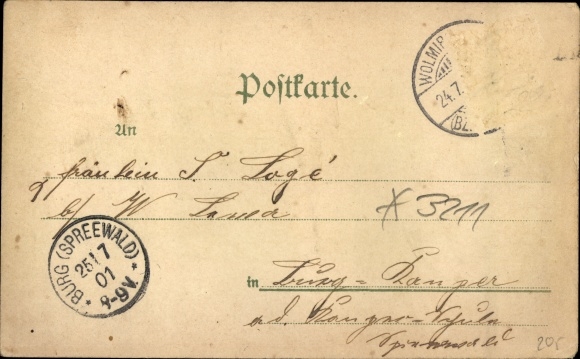 Postkarte.
WOLMIR
24.7.
(BZ.
An
fräulein T Logé
b/ W Lawa
* 3211
BURG (SPREEWALD)
25 17
01
8-9V.
in Burg = Kauper
a.d. Kauper-Schule
Spreewald
20,-